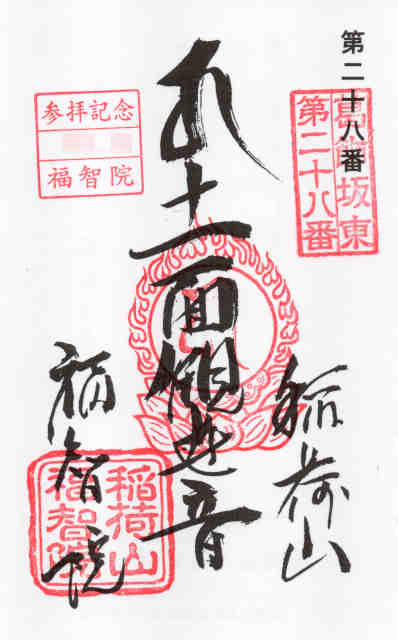 第二十八番
葛飾坂東
第二十八番
十一面観世音
稲荷山
福智院
参拝記念
福智院
稲荷山
福智院